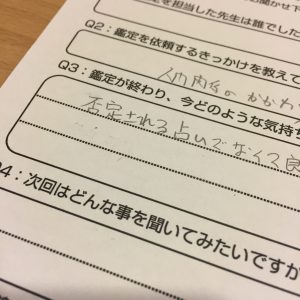 を担当した先生は誰でした
Q2：鑑定を依頼するきっかけを教えて
人間関係のかかわ
Q3：鑑定が終わり、今どのような気持ち
否定される占いでなくて良
Q4：次回はどんな事を聞いてみたいですか